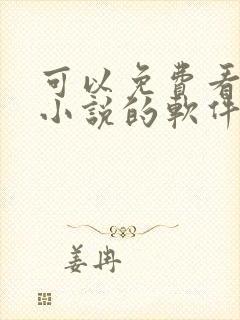 可以免費看
小說的軟件
姜冉